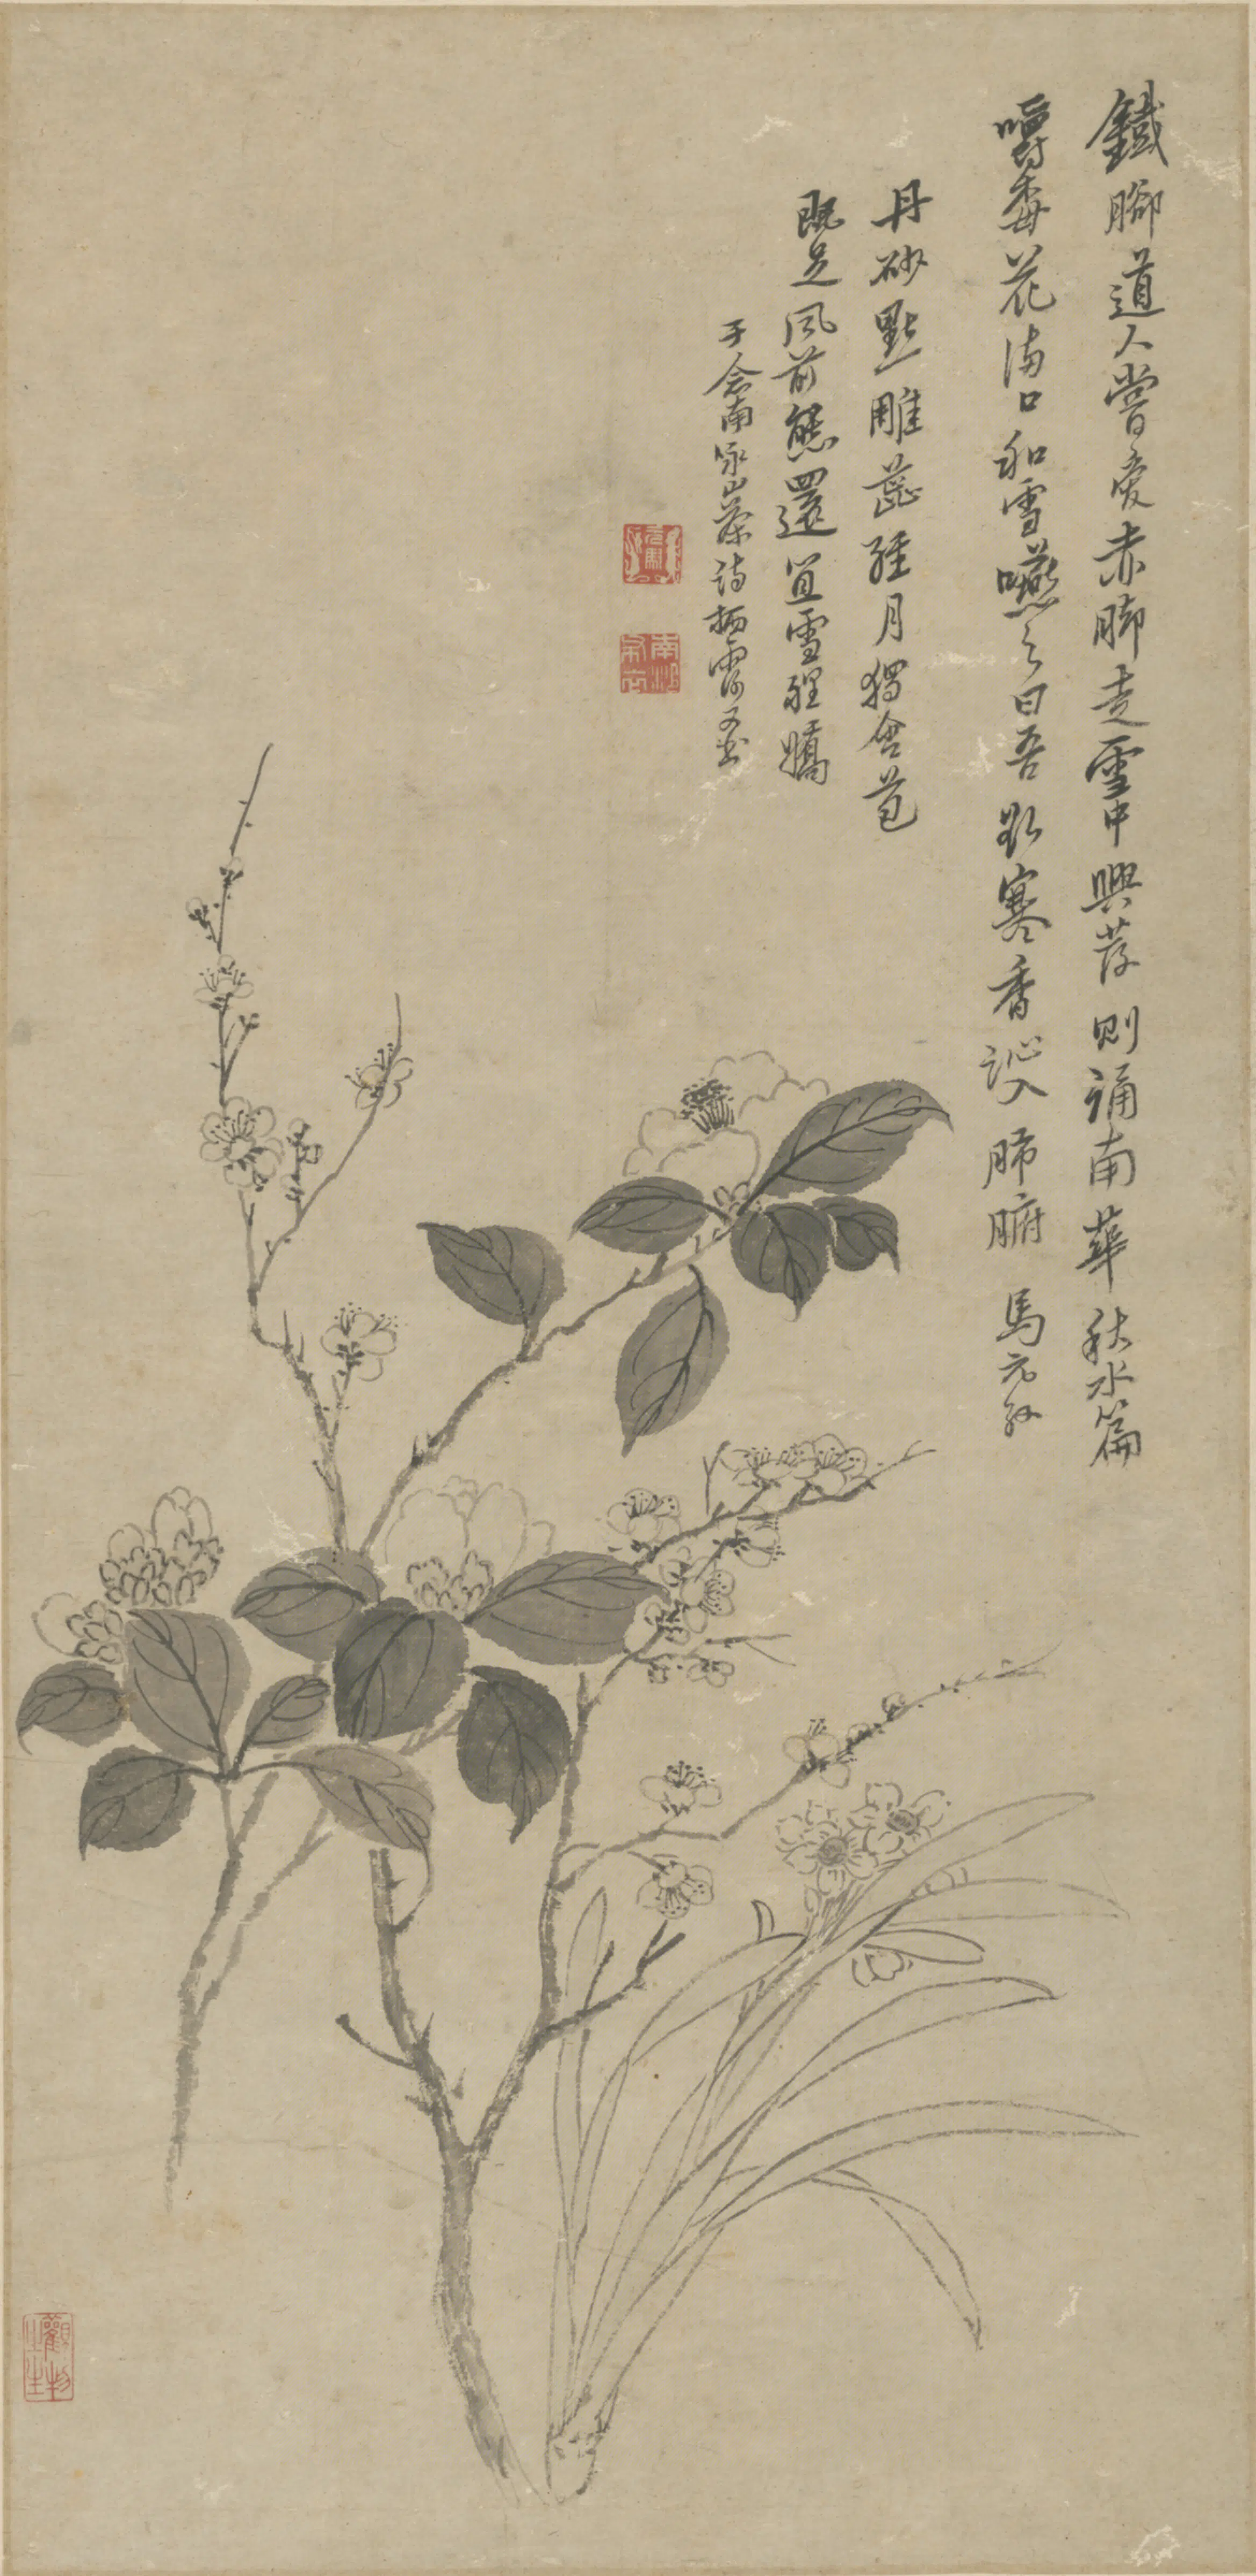 鐵腳道人嘗愛赤脚走雪中興發則誦南華秋水篇
嚼梅花滿口和雪嚥之曰吾欲寒香沁入肺腑 馬元馭
丹砂點雕蕊經月獨含苞
既足風前態還宜雪裡嬌
于念東咏山茶詩栖霞又書